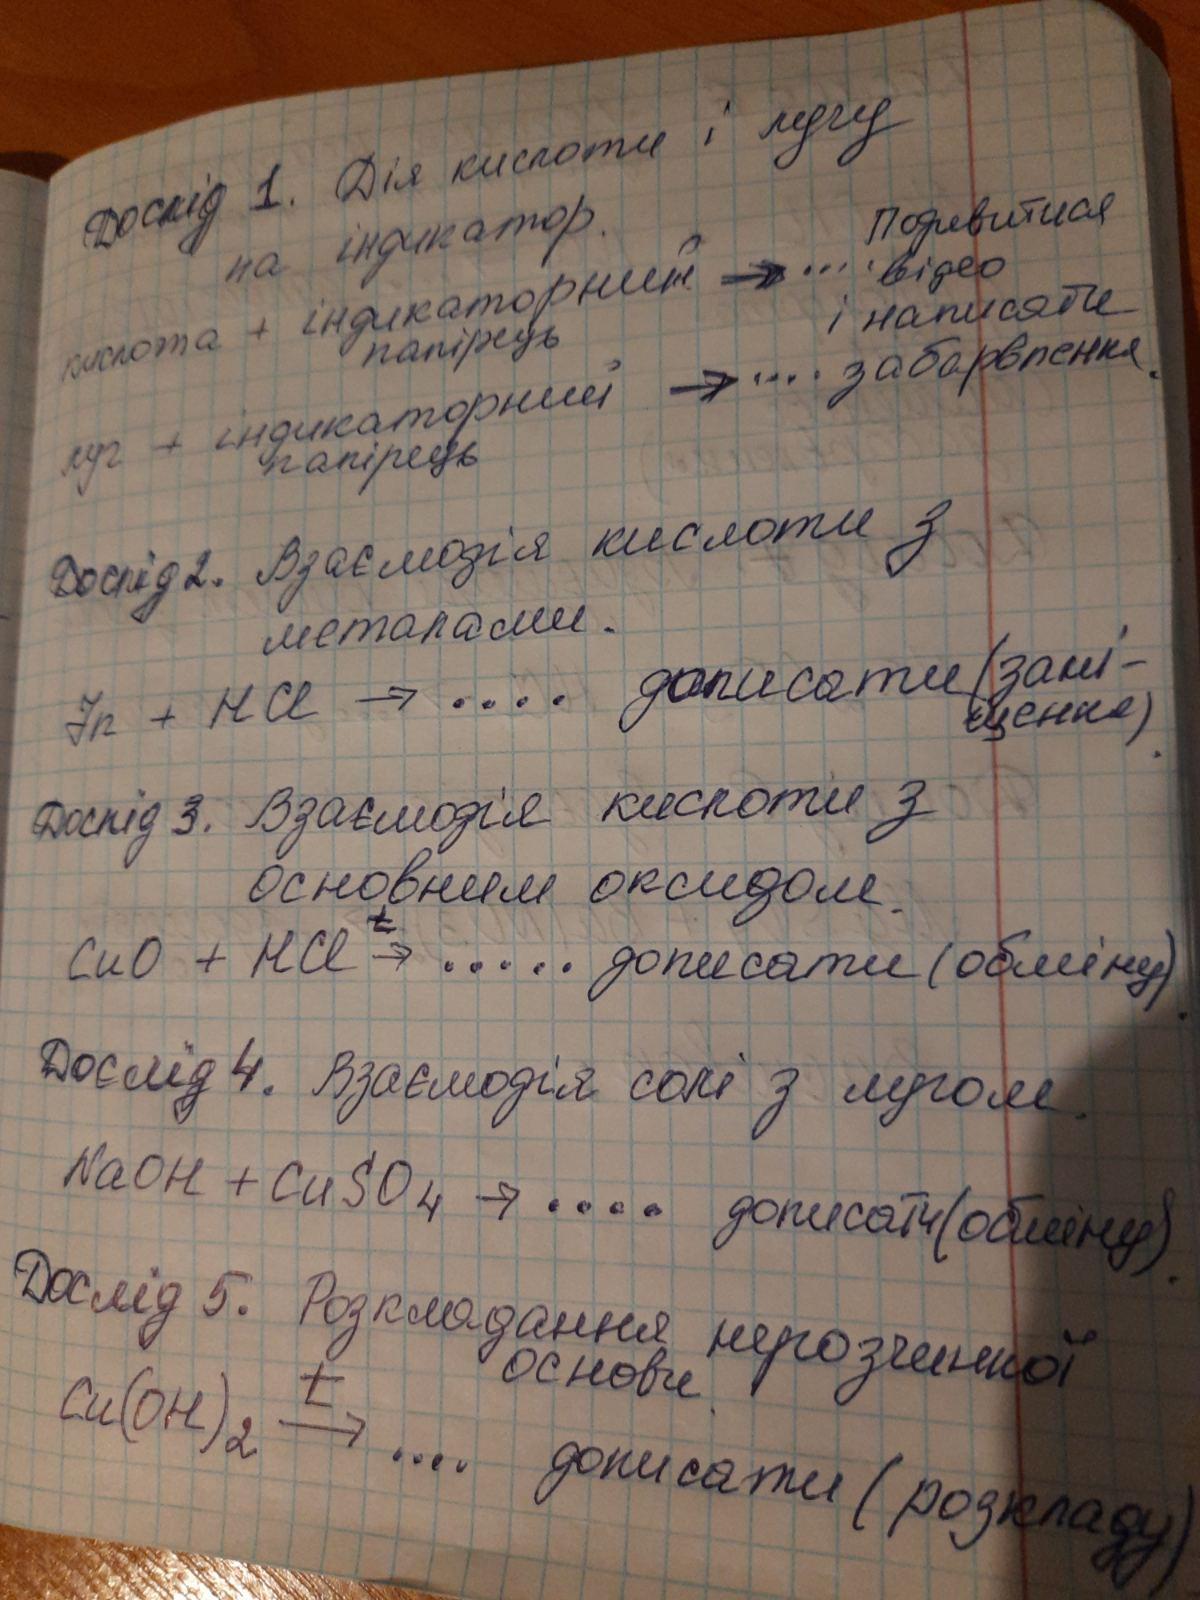 Дослід 1. Дія кислоти і лугу
на індикатор.
кислота + індикаторний папірець → .... Подивитися відео
луг + індикаторний папірець → .... і написати забарвлення.
Дослід 2. Взаємодія кислоти з
металами.
Zn + HCl → .... дописати (замі-
щення).
Дослід 3. Взаємодія кислоти з
основним оксидом.
CuO + HCl t→ ..... дописати (обміну).
Дослід 4. Взаємодія солі з лугом.
NaOH + CuSO4 → .... дописати (обміну).
Дослід 5. Розкладання нерозчинної
основи.
Cu(OH)2 t→ .... дописати (розкладу)